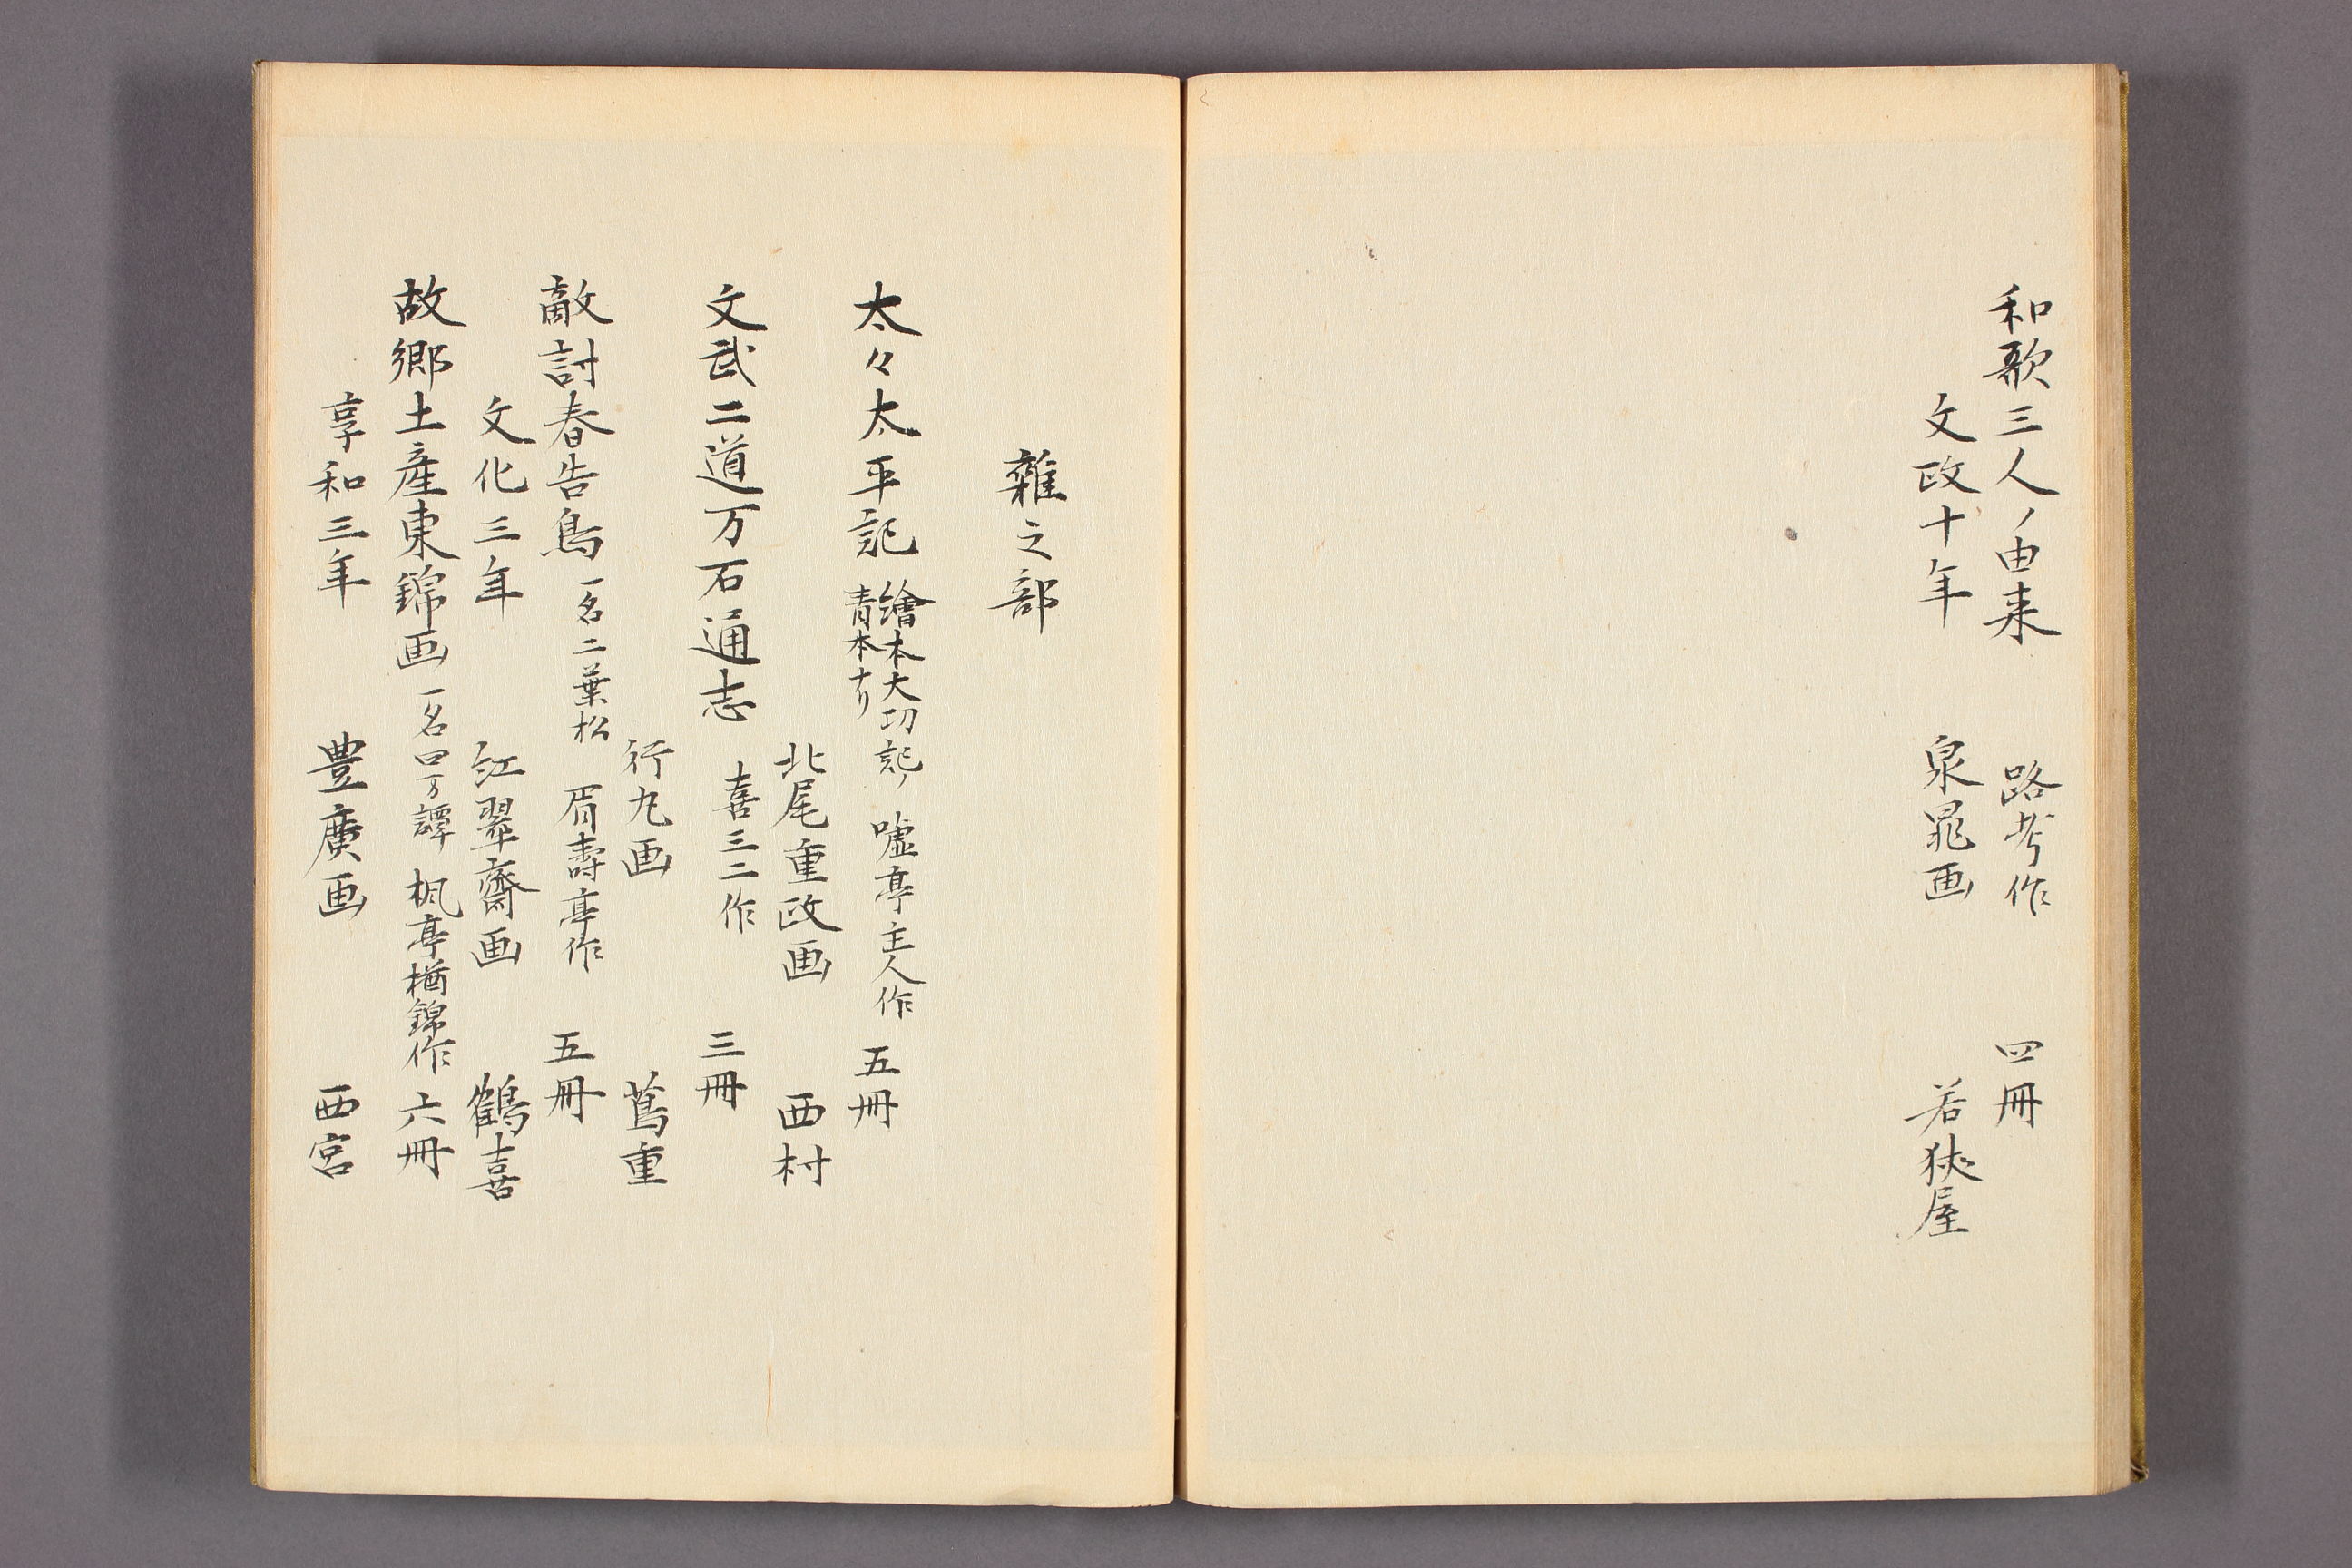 和歌三人ノ由来 路考作 四冊
文政十年 泉晁画 若狭屋
雜之部
太々太平記 繪本太功記ノ青本ナリ 嘘亭主人作 五冊
北尾重政画 西村
文武二道万石通志 喜三二作 三冊
行九画 蔦重
敵討春告鳥 一名二葉松 眉壽亭作 五冊
文化三年 紅翠齋画 鶴喜
故郷土産東錦画 一名四方譚 楓亭楢錦作 六冊
享和三年 豊廣画 西宮